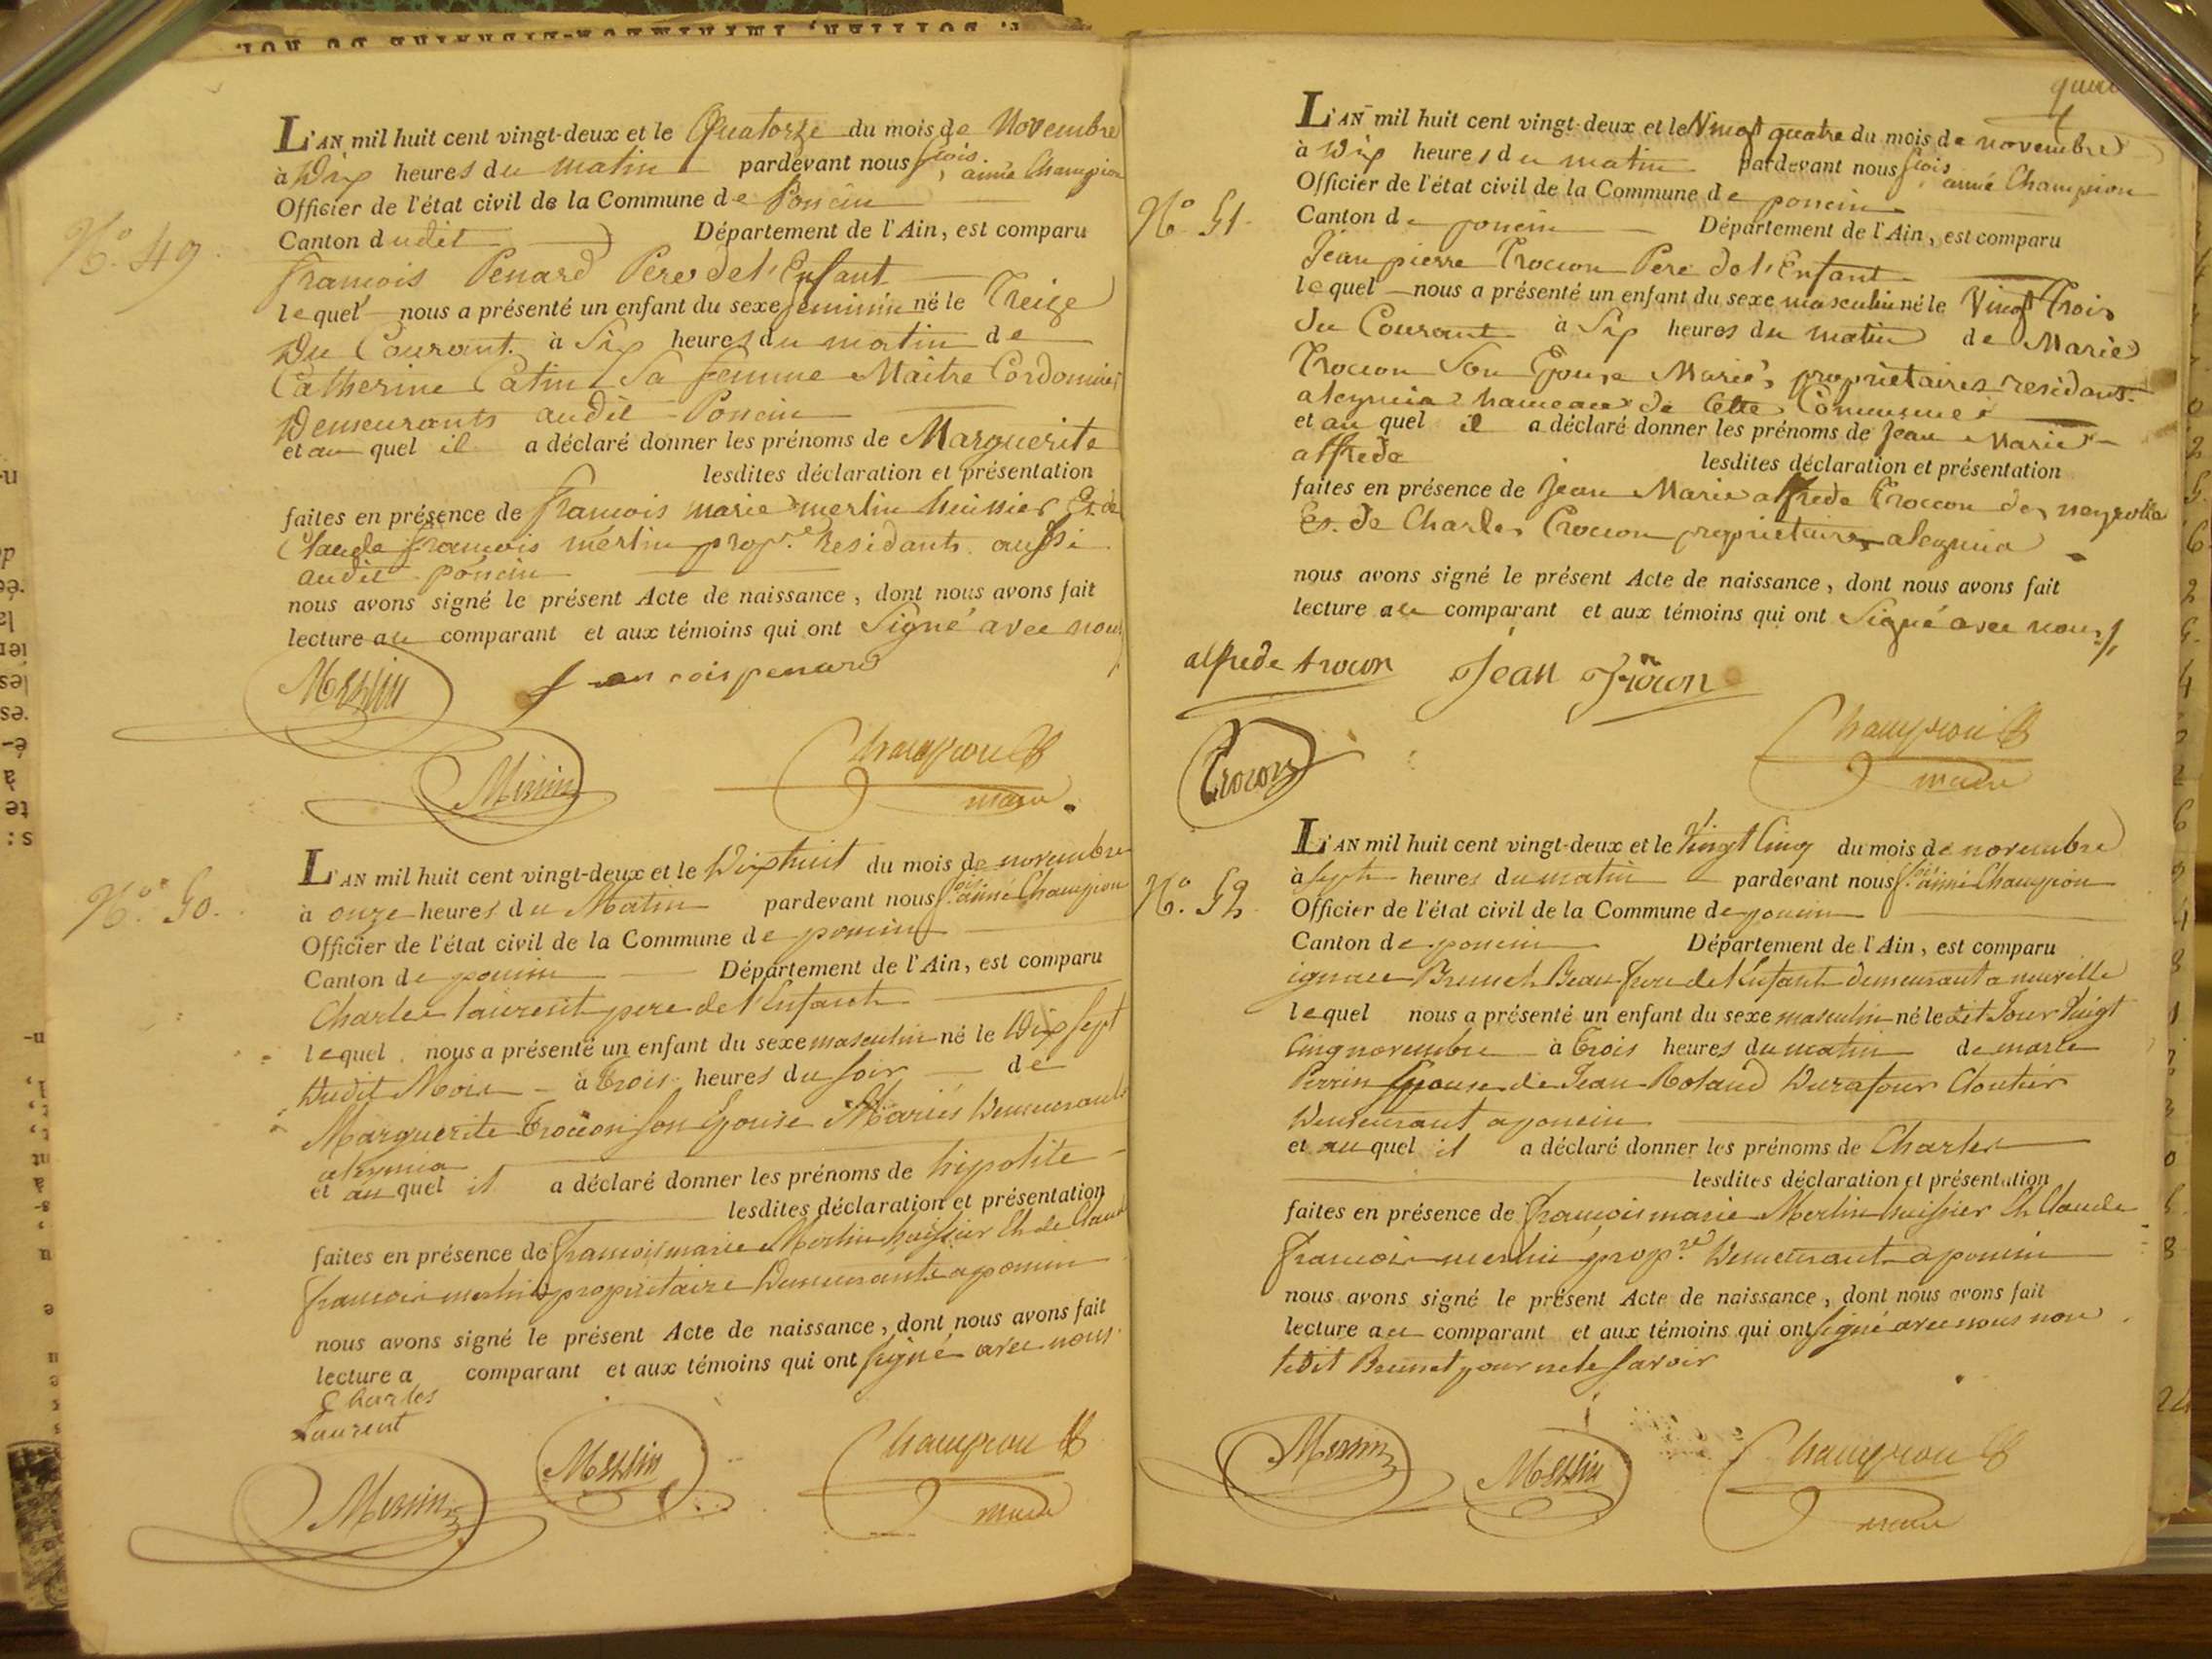 N.º 49.
L'AN mil huit cent vingt-deux et le Quatorze du mois de Novembre
à Dix heures du matin pardevant nous f.çois aimé Champion
Officier de l'état civil de la Commune de Poncin
Canton dudit Département de l'Ain, est comparu
francois Penard Pere de l'Enfant
lequel nous a présenté un enfant du sexe feminin né le Treize
Du Courant à Six heures du matin de
Catherine Catin Sa femme Maitre Cordonnier
Demeurants audit Poncin
et au quel il a déclaré donner les prénoms de Marguerite
lesdites déclaration et présentation
faites en présence de francois marie merlin huissier Et de
Claude francois merlin prop.re residants aussi
audit poncin
nous avons signé le présent Acte de naissance, dont nous avons fait
lecture au comparant et aux témoins qui ont Signé avec nous
Merlin francois penard
Merlin Champion
maire
N.º 50.
L'AN mil huit cent vingt-deux et le Dixhuit du mois de novembre
à onze heures du Matin pardevant nous f.çois aimé Champion
Officier de l'état civil de la Commune de poncin
Canton de poncin Département de l'Ain, est comparu
Charles laurent pere de l'Enfant
lequel nous a présenté un enfant du sexe masculin né le Dix Sept
Dudit Mois à trois heures du soir de
Marguerite Trocon son Epouse Mariés Demeurants
aleymia
et au quel il a déclaré donner les prénoms de hipolite
lesdites déclaration et présentation
faites en présence de francois marie Merlin huissier Et de Claude
francois merlin propriétaire Demeurants a poncin
nous avons signé le présent Acte de naissance, dont nous avons fait
lecture a comparant et aux témoins qui ont signé avec nous
Charles
Laurent
Merlin Merlin Champion
maire
N.º 51.
L'AN mil huit cent vingt-deux et le Vingt quatre du mois de novembre
à Dix heures du matin pardevant nous f.çois aimé Champion
Officier de l'état civil de la Commune de poncin
Canton de poncin Département de l'Ain, est comparu
Jean pierre Trocon Pere de l'Enfant
lequel nous a présenté un enfant du sexe masculin né le Vingt Trois
du Courant à Six heures du matin de Marie
Trocon Son Epouse Mariés, propriétaires residants
aleymia hameau de Cette Commune
et au quel il a déclaré donner les prénoms de Jean Marie
alfrede lesdites déclaration et présentation
faites en présence de Jean Marie alfrede Trocon de neyrolle
Et de Charles Trocon propriétaires aleymia
nous avons signé le présent Acte de naissance, dont nous avons fait
lecture au comparant et aux témoins qui ont Signé avec nous
alfrede trocon Jean Trocon
Trocon Champion
maire
N.º 52.
L'AN mil huit cent vingt-deux et le Vingt Cinq du mois de novembre
à sept heures du matin pardevant nous f.çois aimé Champion
Officier de l'état civil de la Commune de poncin
Canton de poncin Département de l'Ain, est comparu
ignace Brunet Beau frere de l'Enfant demeurant a neuville
lequel nous a présenté un enfant du sexe masculin né ledit Jour Vingt
Cinq novembre à trois heures du matin de marie
Perrin Epouse de Jean Roland Durafour Cloutier
Demeurant a poncin
et au quel il a déclaré donner les prénoms de Charles
lesdites déclaration et présentation
faites en présence de francois marie Merlin huissier Et Claude
francois merlin prop.re Demeurant a poncin
nous avons signé le présent Acte de naissance, dont nous avons fait
lecture au comparant et aux témoins qui ont signé avec nous non
ledit Brunet pour ne le savoir
Merlin Merlin Champion
maire